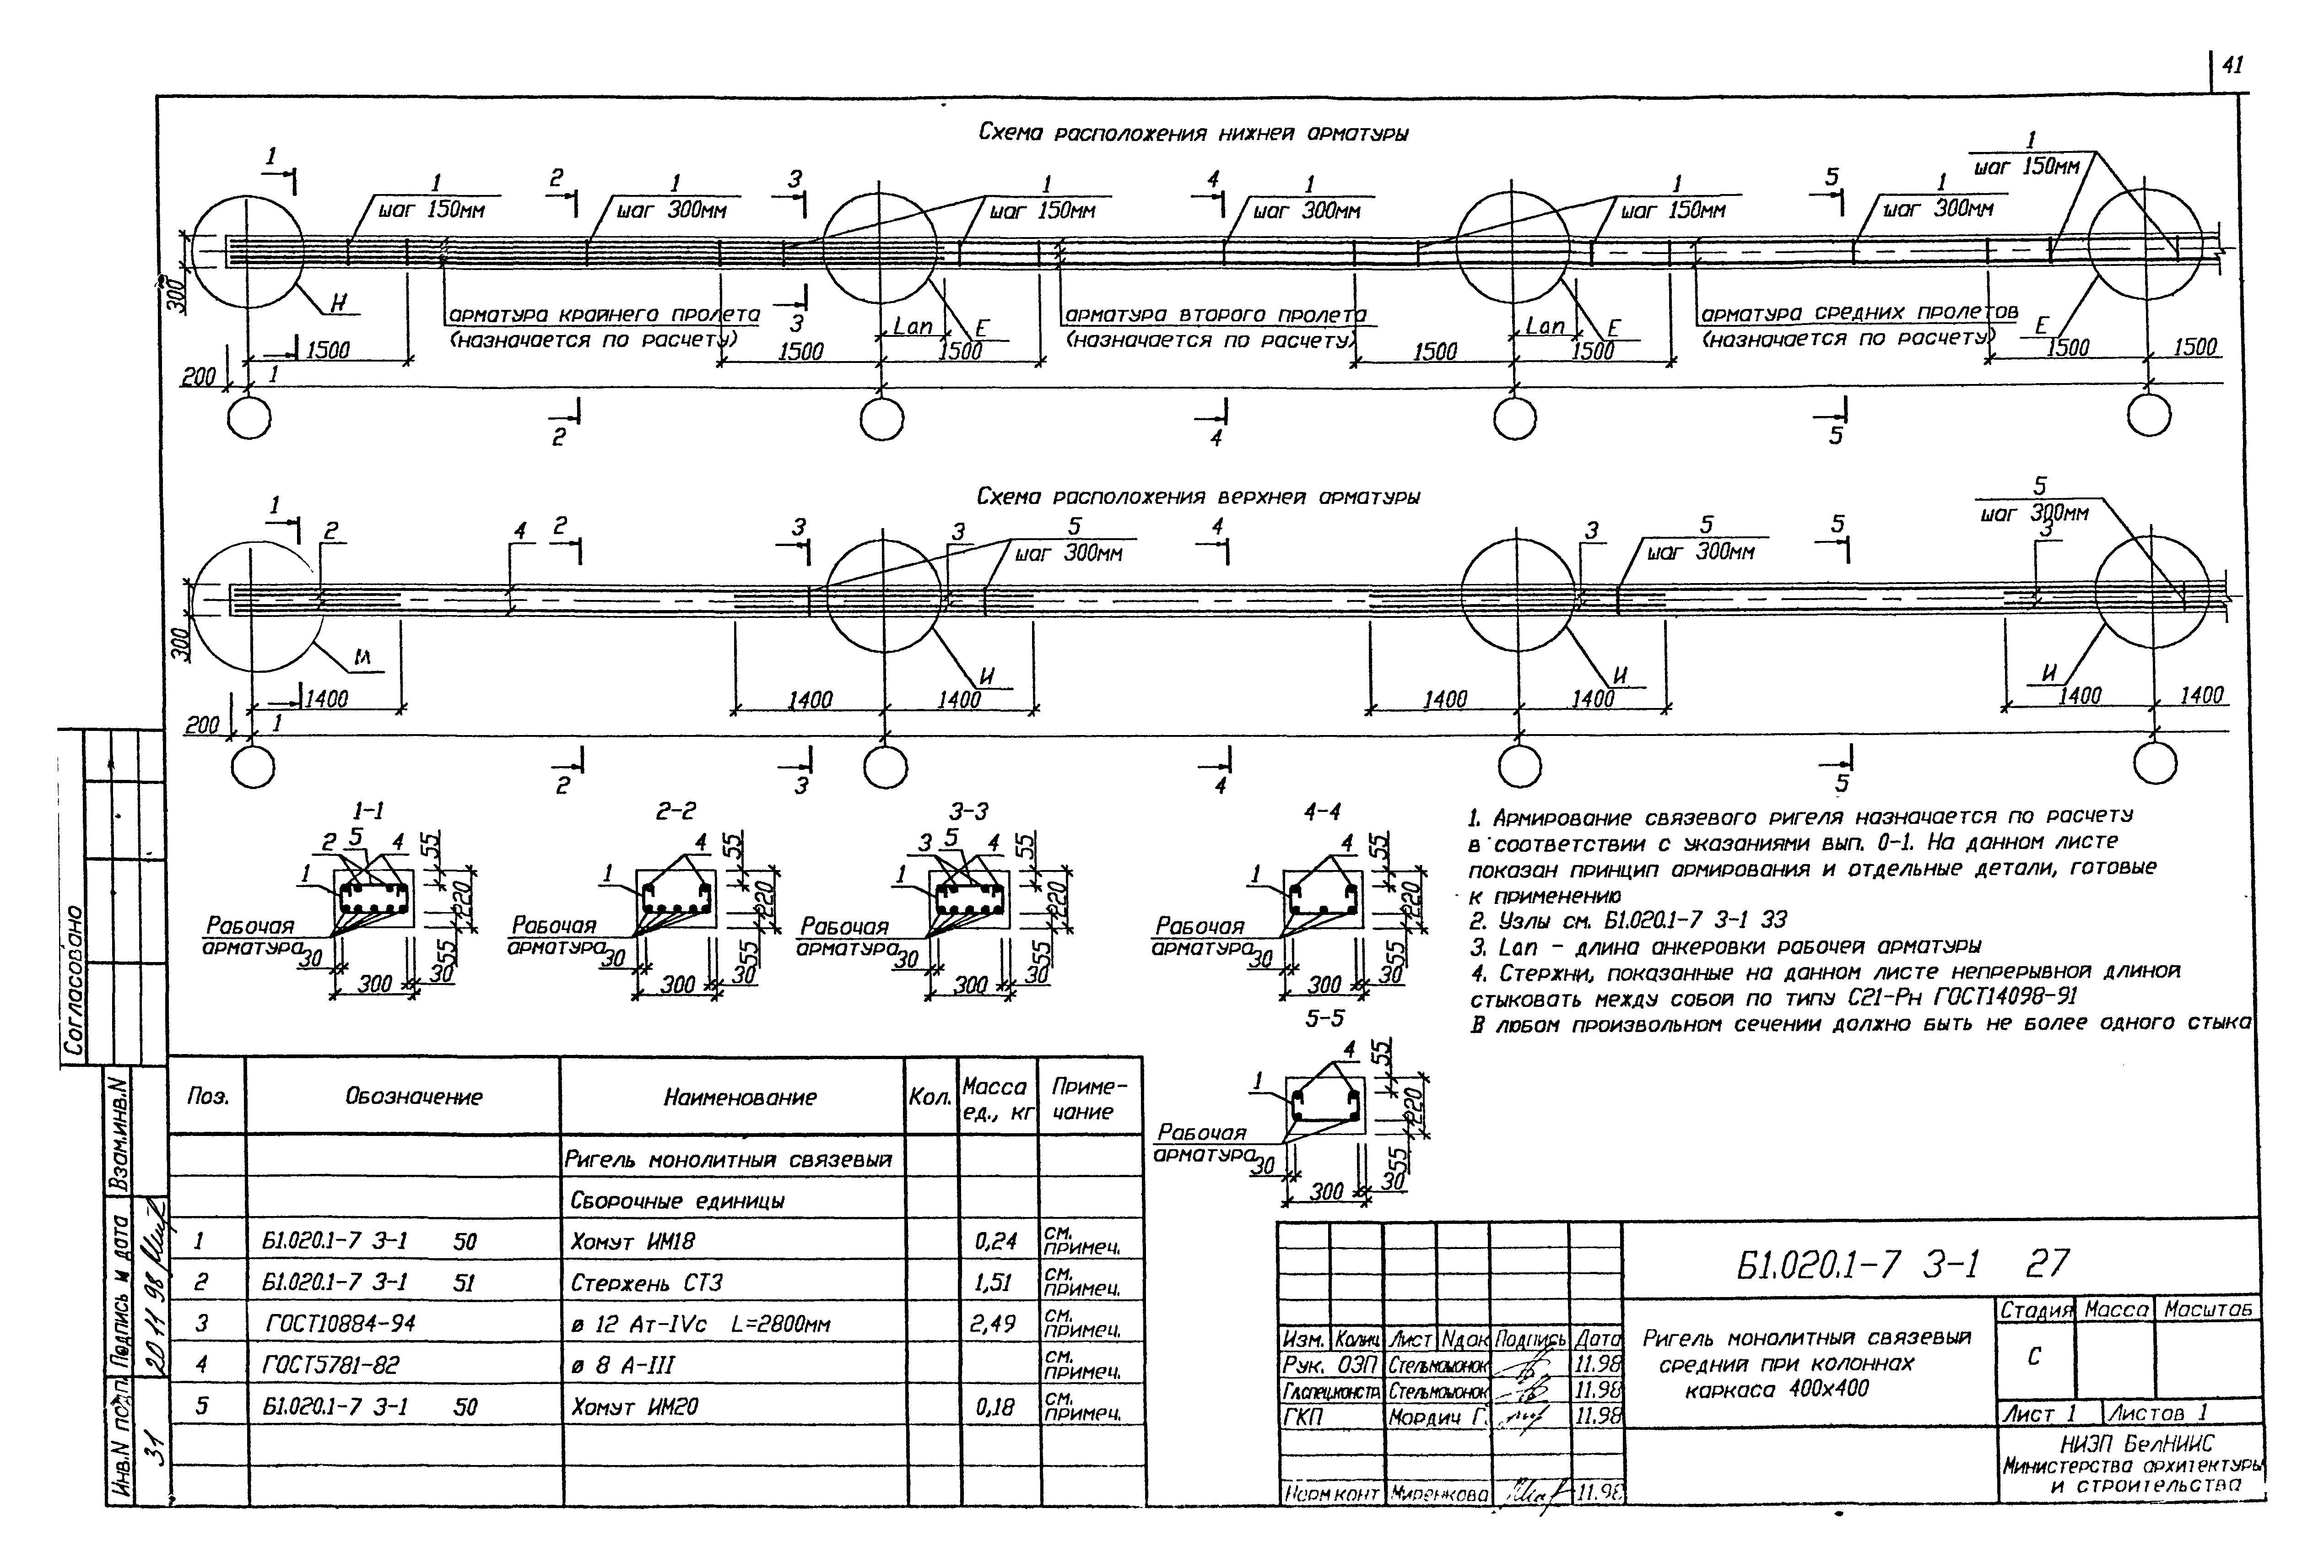 41
Схема расположения нижней арматуры
1
1
шаг 150мм
2
1
шаг 300мм
3
1
шаг 150мм
4
1
шаг 300мм
1
шаг 150мм
5
1
шаг 300мм
1
шаг 150мм
300
Н
арматура крайнего пролета
(назначается по расчету)
3
Lan
Е
арматура второго пролета
(назначается по расчету)
Lan
Е
арматура средних пролетов
(назначается по расчету)
Е
1500
1500
1500
1500
1500
1500
1500
200
1
2
4
5
Схема расположения верхней арматуры
1
2
4
2
3
3
5
шаг 300мм
4
3
5
шаг 300мм
5
5
шаг 300мм
3
300
М
И
И
И
1400
1400
1400
1400
1400
1400
1400
200
1
2
3
4
5
1-1
2
5
4
1
55
220
55
Рабочая
арматура
30
300
30
2-2
4
1
55
220
55
Рабочая
арматура
30
300
30
3-3
3
5
4
1
55
220
55
Рабочая
арматура
30
300
30
4-4
4
1
55
220
55
Рабочая
арматура
30
300
30
5-5
4
1
55
220
55
Рабочая
арматура
30
300
30
1. Армирование связевого ригеля назначается по расчету
в соответствии с указаниями вып. 0-1. На данном листе
показан принцип армирования и отдельные детали, готовые
к применению
2. Узлы см. Б1.020.1-7 3-1 33
3. Lan - длина анкеровки рабочей арматуры
4. Стержни, показанные на данном листе непрерывной длиной
стыковать между собой по типу С21-Рн ГОСТ14098-91
В любом произвольном сечении должно быть не более одного стыка
Согласовано
Взам.инв.N
Подпись и дата
20 11 98
Инв.N подп.
31
Поз. Обозначение Наименование Кол. Масса ед., кг Приме-чание
Ригель монолитный связевый
Сборочные единицы
1 Б1.020.1-7 3-1 50 Хомут ИМ18 0,24 см. примеч.
2 Б1.020.1-7 3-1 51 Стержень СТ3 1,51 см. примеч.
3 ГОСТ10884-94 ø 12 Ат-IVс L=2800мм 2,49 см. примеч.
4 ГОСТ5781-82 ø 8 А-III см. примеч.
5 Б1.020.1-7 3-1 50 Хомут ИМ20 0,18 см. примеч.
Б1.020.1-7 3-1 27
Изм. Кол.уч Лист Nдок Подпись Дата
Рук. ОЭП Стельмашонок 11.98
Гл.спец.констр. Стельмашонок 11.98
ГКП Мордич Г. 11.98
Норм контр Миренкова 11.98
Ригель монолитный связевый
средний при колоннах
каркаса 400х400
Стадия Масса Масштаб
С
Лист 1 Листов 1
НИЭП БелНИИС
Министерства архитектуры
и строительства